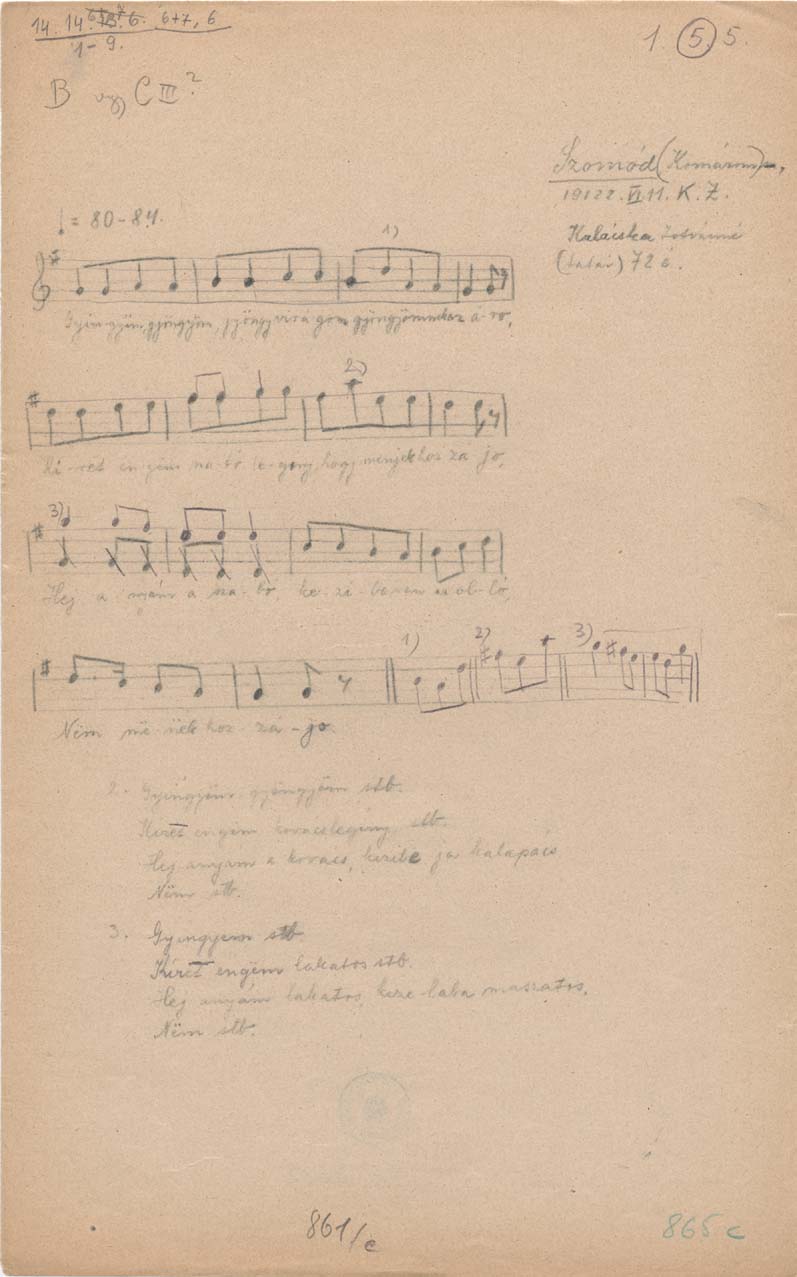 14. 14. 6+7, 6
1-9.
1. 5. 5.
B vagy C III ?
Szomód (Komárom),
VI. 11. K. Z.
Kalácska Istvánné
(tatár) 72 é.
= 80-84.
1)
Gyöngyöm, gyöngyöm, gyöngyvirágom
2)
Ki-rét en-gëm sza-bó le-gény, hogy menjek hoz-zá jo,
3)
Hej a-nyám a sza-bó, ke-zi-be az ol-ló,
1) 2) 3)
Nëm më-nek hoz-zá-jo.
2. Gyöngyöm gyöngyöm stb.
Kirét engëm kovácslegény stb.
Hej anyám a kovács, kezibe ja kalapács
Nëm stb.
3. Gyöngyem stb.
Kirét engëm lakatos stb.
Hej anyám lakatos, keze-lába maszatos,
Nëm stb.
861/c
865 c